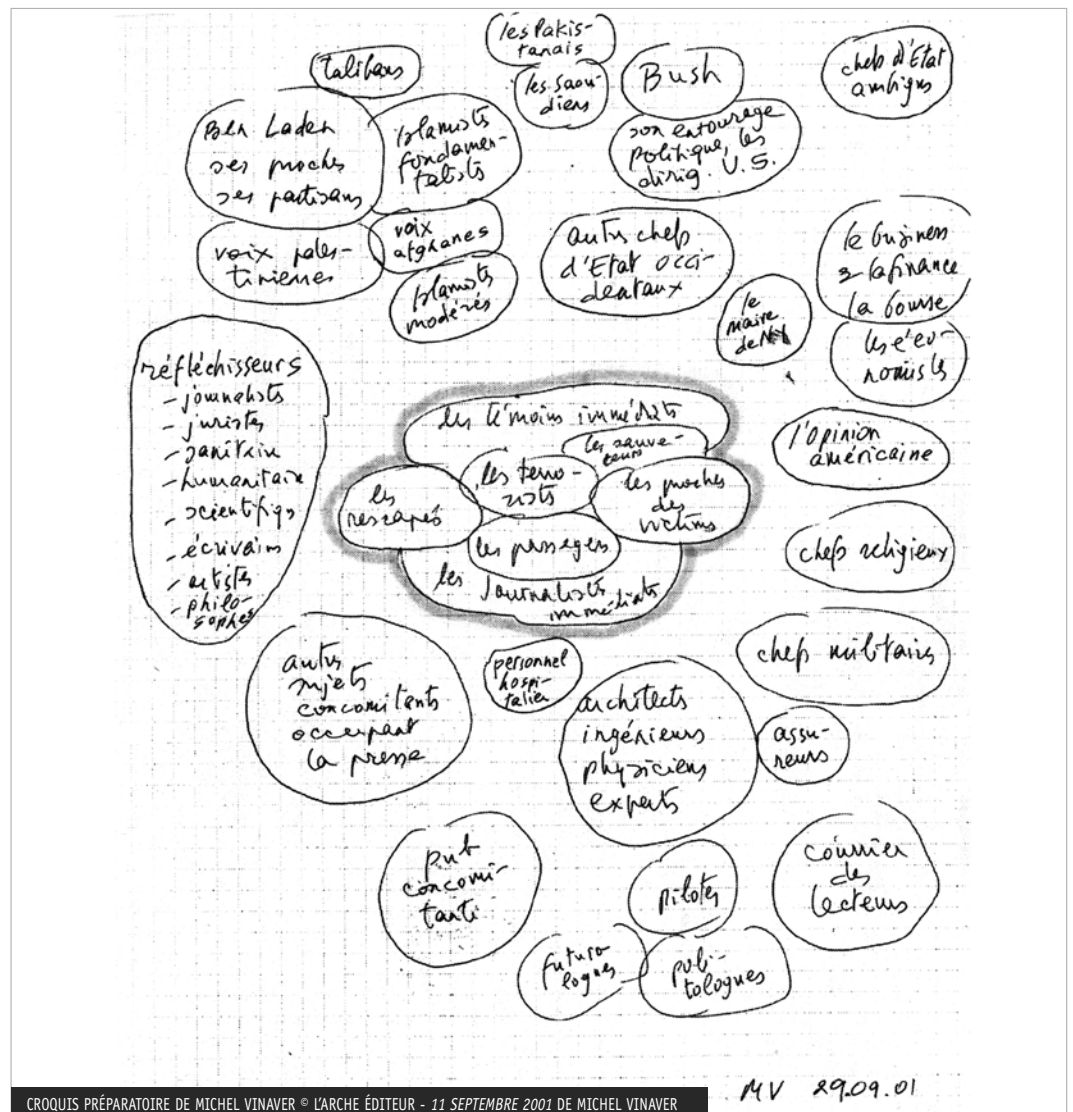 les Pakis-
tanais
talibans
les saou-
diens
Bush
chefs d'Etat
ambigus
Ben Laden
ses proches
ses partisans
islamistes
fondamen-
talistes
son entourage
politique, les
dirig. U.S.
voix pales-
tiniennes
voix
afghanes
islamistes
modérés
autres chefs
d'Etat occi-
dentaux
le business
la finance
la bourse
le
maire
de NY
les éco-
nomistes
réfléchisseurs
- journalistes
- juristes
- sanitaire
- humanitaire
- scientifiqs
- écrivains
- artistes
- philo-
sophes
les témoins immédiats
les sauve-
teurs
les terro-
ristes
les
rescapés
les proches
des
victimes
les passagers
les journalistes
immédiats
l'opinion
américaine
chefs religieux
chefs militaires
autres
sujets
concomitants
occupant
la presse
personnel
hospi-
talier
architectes
ingénieurs
physiciens
experts
assu-
reurs
pub
concomi-
tante
pilotes
courrier
des
lecteurs
futuro-
logues
poli-
tologues
MV 29.09.01
CROQUIS PRÉPARATOIRE DE MICHEL VINAVER © L'ARCHE ÉDITEUR - 11 SEPTEMBRE 2001 DE MICHEL VINAVER